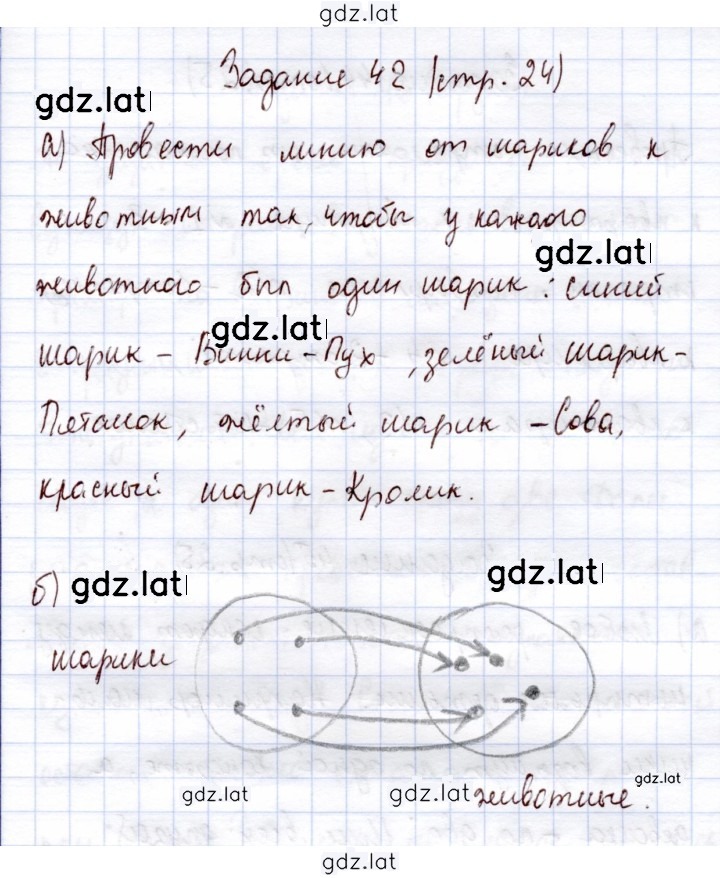 gdz.lat
Задание 42 (стр. 24)
gdz.lat
а) Провести линию от шариков к
животным так, чтобы у каждого
gdz.lat
животного был один шарик: синий
gdz.lat
шарик - Винни-Пух, зелёный шарик -
Пятачок, жёлтый шарик - Сова,
красный шарик - Кролик.
б) gdz.lat
gdz.lat
шарики
gdz.lat
gdz.lat
gdz.lat
животные.
gdz.lat